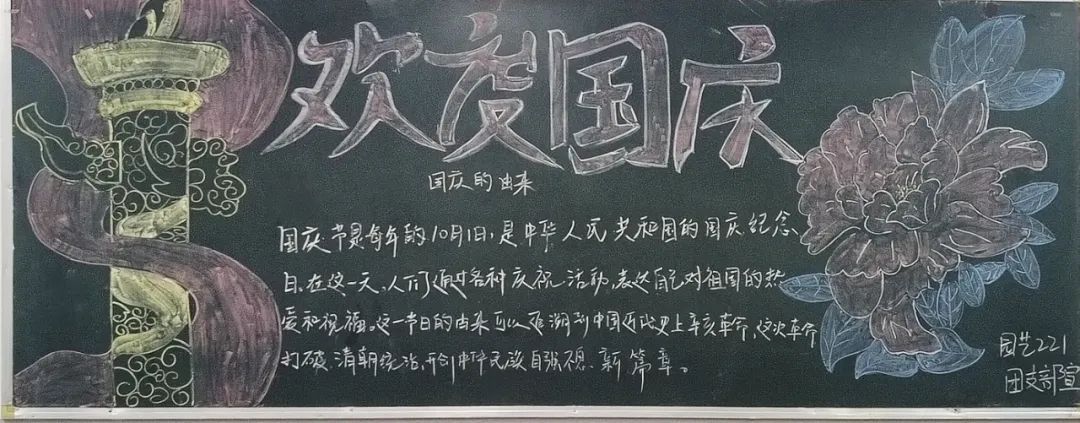 欢度国庆
国庆的由来
国庆节是每年的10月1日,是中华人民共和国的国庆纪念、
日,在这一天,人们通过各种庆祝活动,表达自己对祖国的热
爱和祝福。这一节日的由来可以追溯到中国近代史上辛亥革命,这次革命
打破清朝统治,开创中华民族自强 新篇章。
园艺221
团支部宣